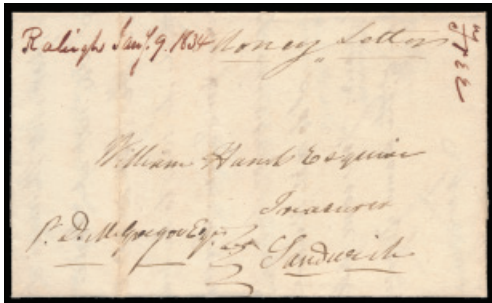 Raleigh Jany. 9. 1834 Money Letter
Free
William Hands Esquire
Treasurer
P. D. McGregor Esqr.
Sandwich